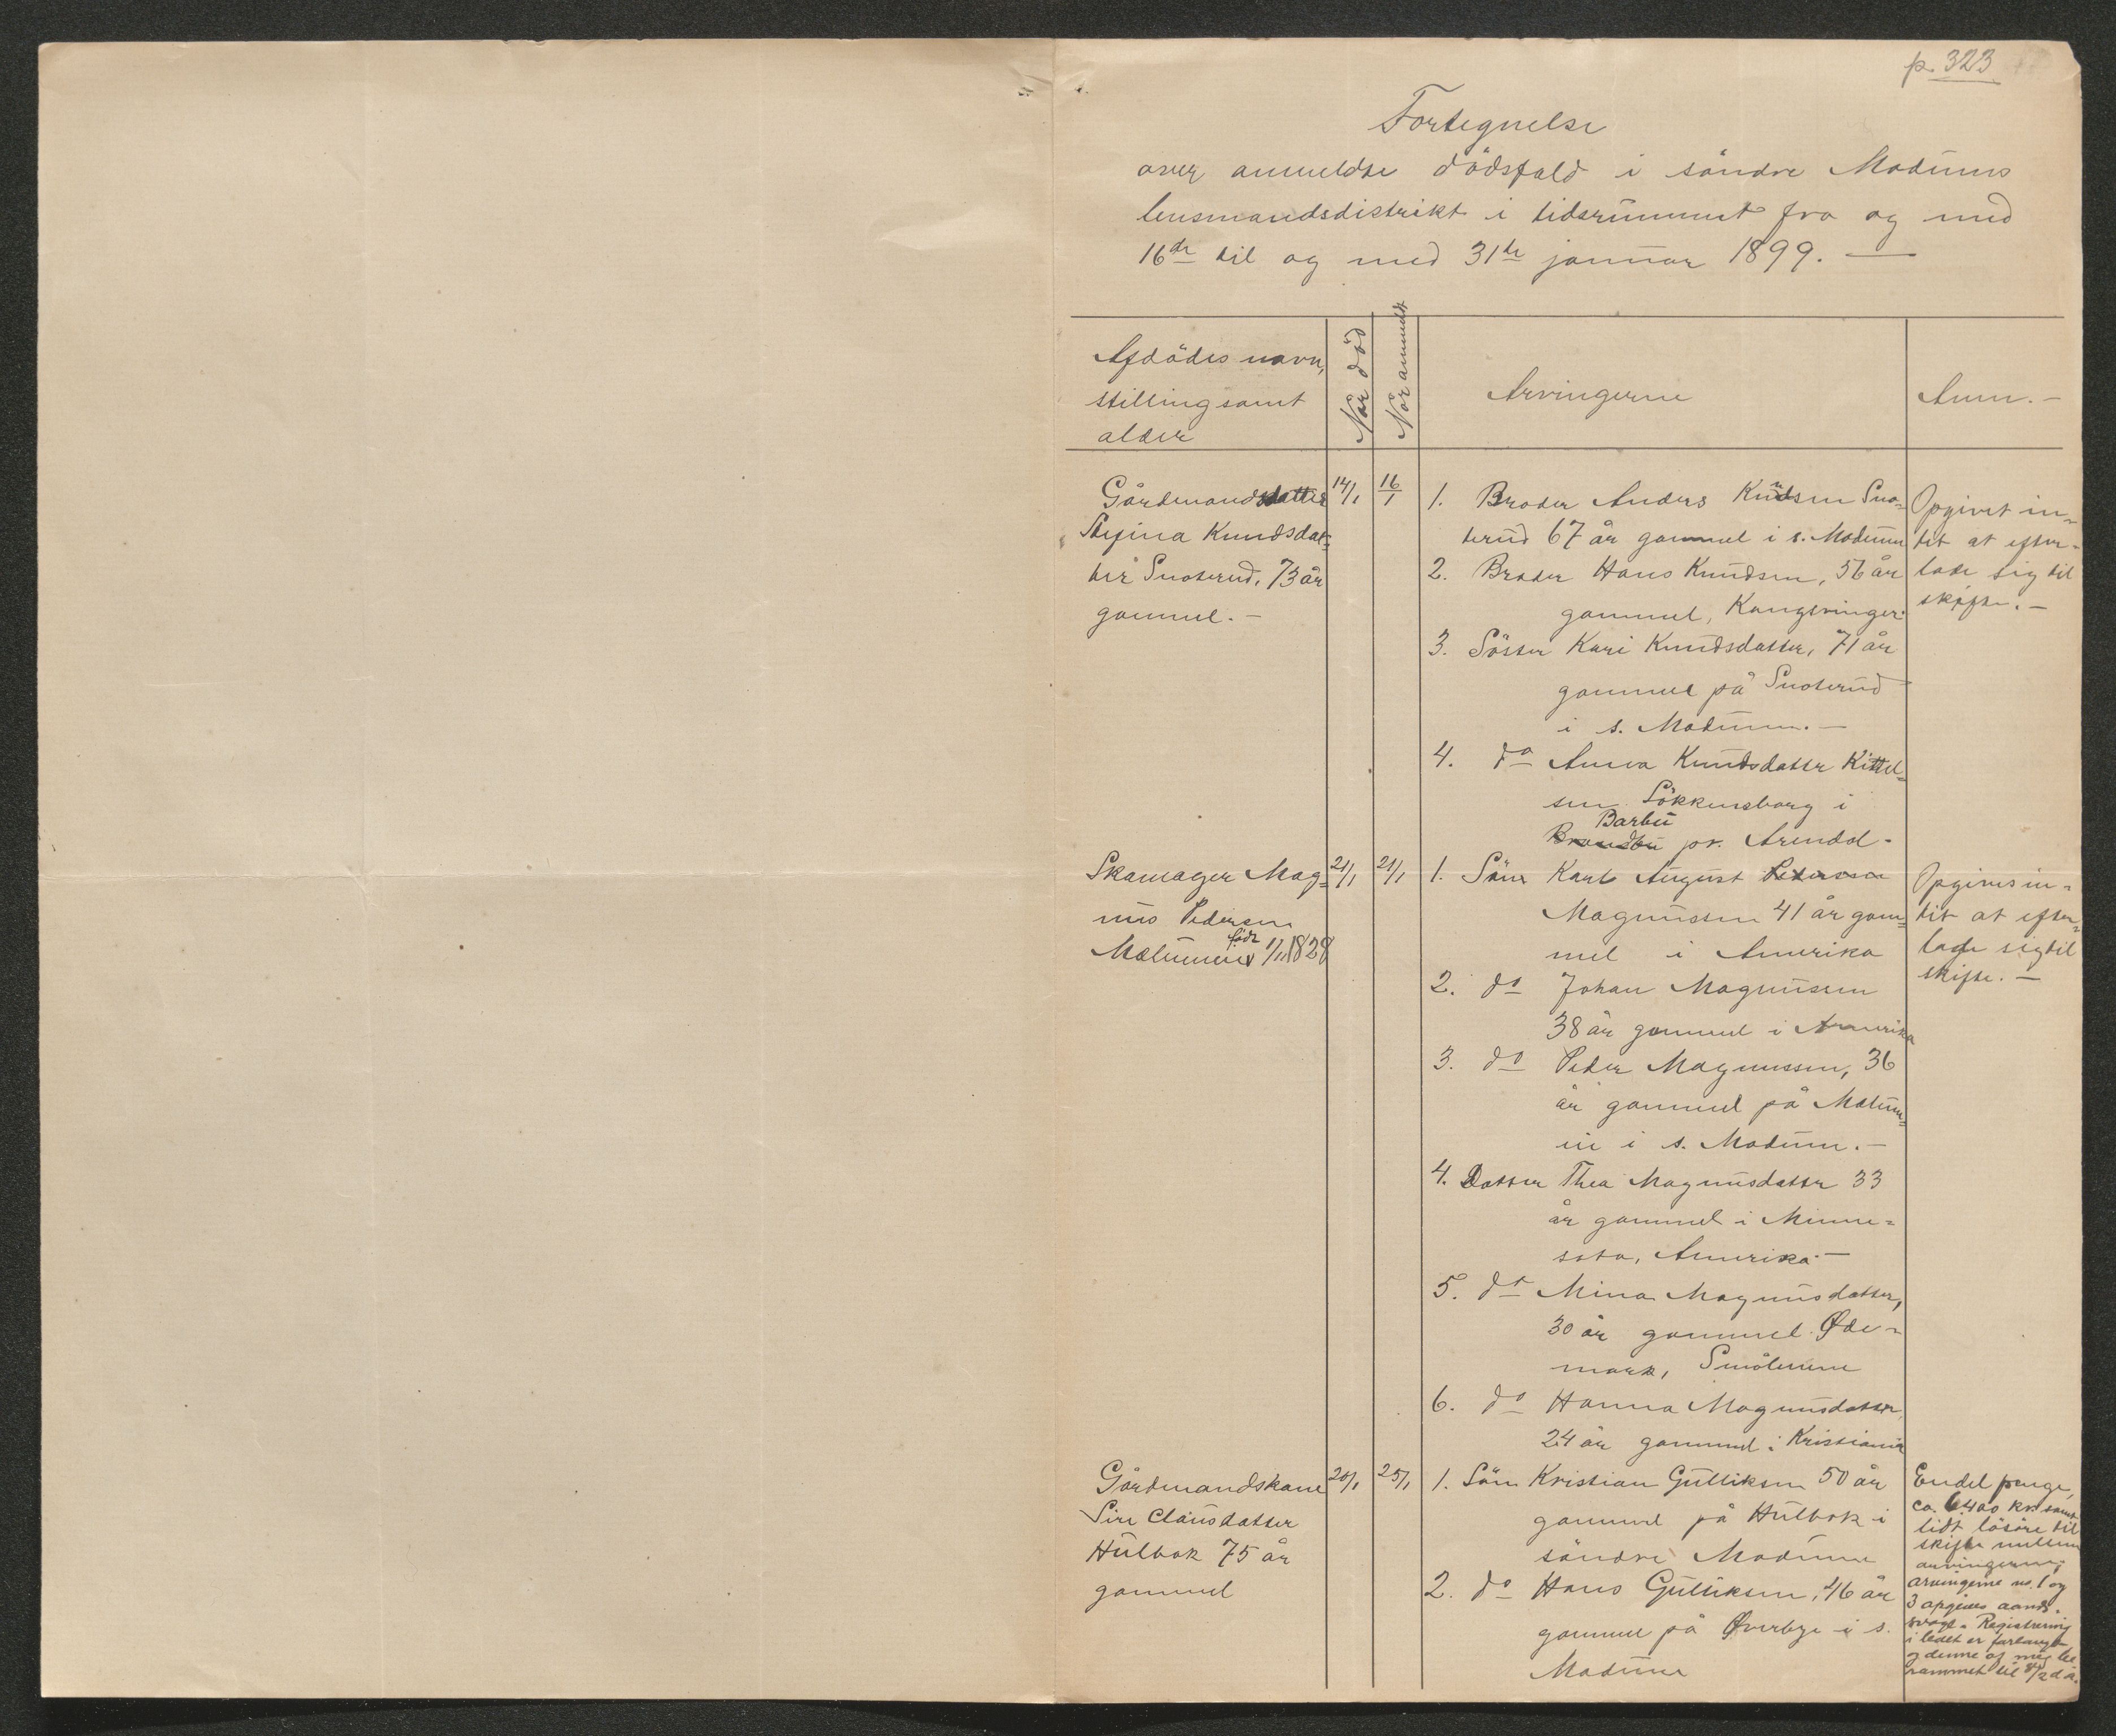 p. 323
Fortegnelse
over anmeldte dödsfald i söndre Modums
lensmandsdistrikt i tidsrummet fra og med
16de til og med 31te januar 1899. —
Afdödes navn,
stilling samt
alder
Når död
Når anmeldt
Arvingerne
Anm. —
Gårdmandsdatter
Knudsdat-
ter Snoterud, 73 år
gammel. —
14/1
16/1
1. Broder Anders Knudsen Sno-
terud 67 år gammel i s. Modum
2. Broder Hans Knudsen, 56 år
gammel, Kongsvinger.
3. Söster Kari Knudsdatter, 71 år
gammel på Snoterud
i s. Modum. —
4. do Anna Knudsdatter Kittel-
sen Lökkensborg i
Barbu
Brandbu pr. Arendal.
Opgivet in-
tet at efter-
lade sig til
skifte. —
Skomager Mag-
nus Pedersen
født
Mælumenie 1/1 1828
21/1
21/1
1. Sön Karl August Petersen
Magnussen 41 år gam-
mel i Amerika
2. do Johan Magnussen
38 år gammel i Amerika
3. do Peder Magnussen, 36
år gammel på Mælum-
eie i s. Modum. —
4. Datter Thea Magnusdatter 33
år gammel i Minne-
sota, Amerika. —
5. do Mina Magnusdatter,
30 år gammel. Øde-
mark, Smålenene
6. do Hanna Magnusdatter,
24 år gammel i Kristiania
Opgives in-
tet at efter-
lade sig til
skifte. —
Gårdmandskone
Siri Clausdatter
Hulbak 75 år
gammel
20/1
25/1
1. Sön Kristian Gulliksen 50 år
gammel på Hulbak i
söndre Modum
2. do Hans Gulliksen, 46 år
gammel på Øverbye i s.
Modum
Endel penge,
ca. 6400 kr. samt
lidt lösöre til
skifte mellem
arvingerne,
arvingerne no. 1 og
3 opgives aands-
svage. Registrering
i boet er forlangt
og denne af mig be-
rammet til 8/2 d. å.